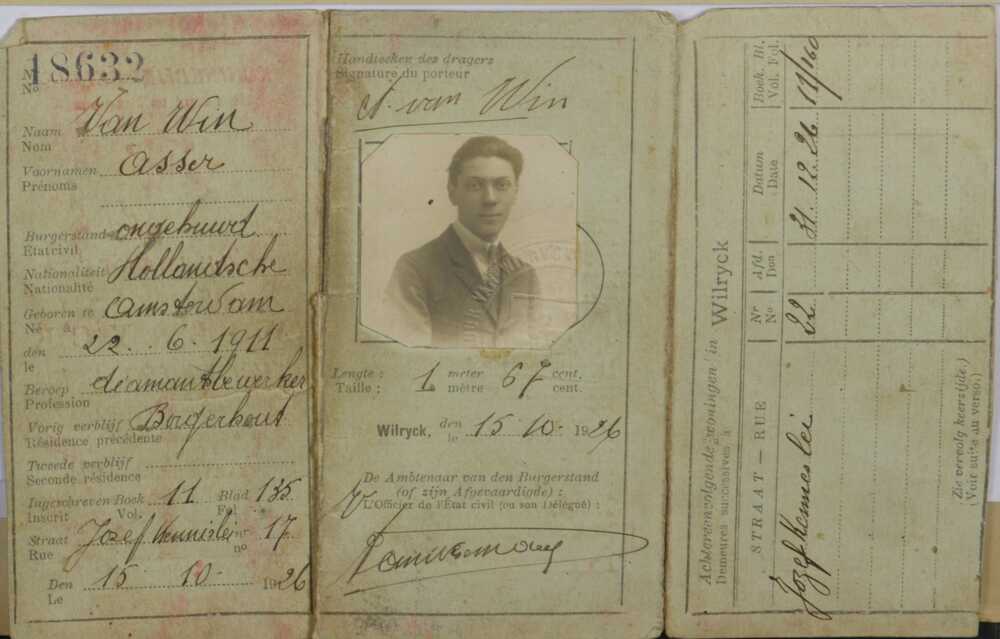 18632
No
Naam Van Win
Nom
Voornamen Asser
Prénoms
Burgerstand ongehuwd
Etat civil
Nationaliteit Hollandsche
Nationalité
Geboren te Amsterdam
Né à
den 22. 6. 1911
le
Beroep diamantbewerker
Profession
Vorig verblijf Borgerhout
Résidence précédente
Tweede verblijf
Seconde résidence
Ingeschreven Boek 11 Blad 135
Inscrit Vol. Fol.
Straat Jozef Hennislei nr 17
Rue no
Den 15 10 1926
Le
Handteeken des dragers
Signature du porteur
A. van Win
Lengte : 1 meter 67 cent.
Taille : mètre cent.
Wilryck, den 15 10 1926
le
De Ambtenaar van den Burgerstand
(of zijn Afgevaardigde) :
L'Officier de l'État civil (ou son Délégué) :
Achtereenvolgende woningen in Wilryck
Demeures successives à
STRAAT — RUE
Nr Afd. Datum Boek. Bl.
No Don Date Vol. Fol.
32 31.12.26 11/160
Zie vervolg keerzijde.)
(Voir suite au verso.)